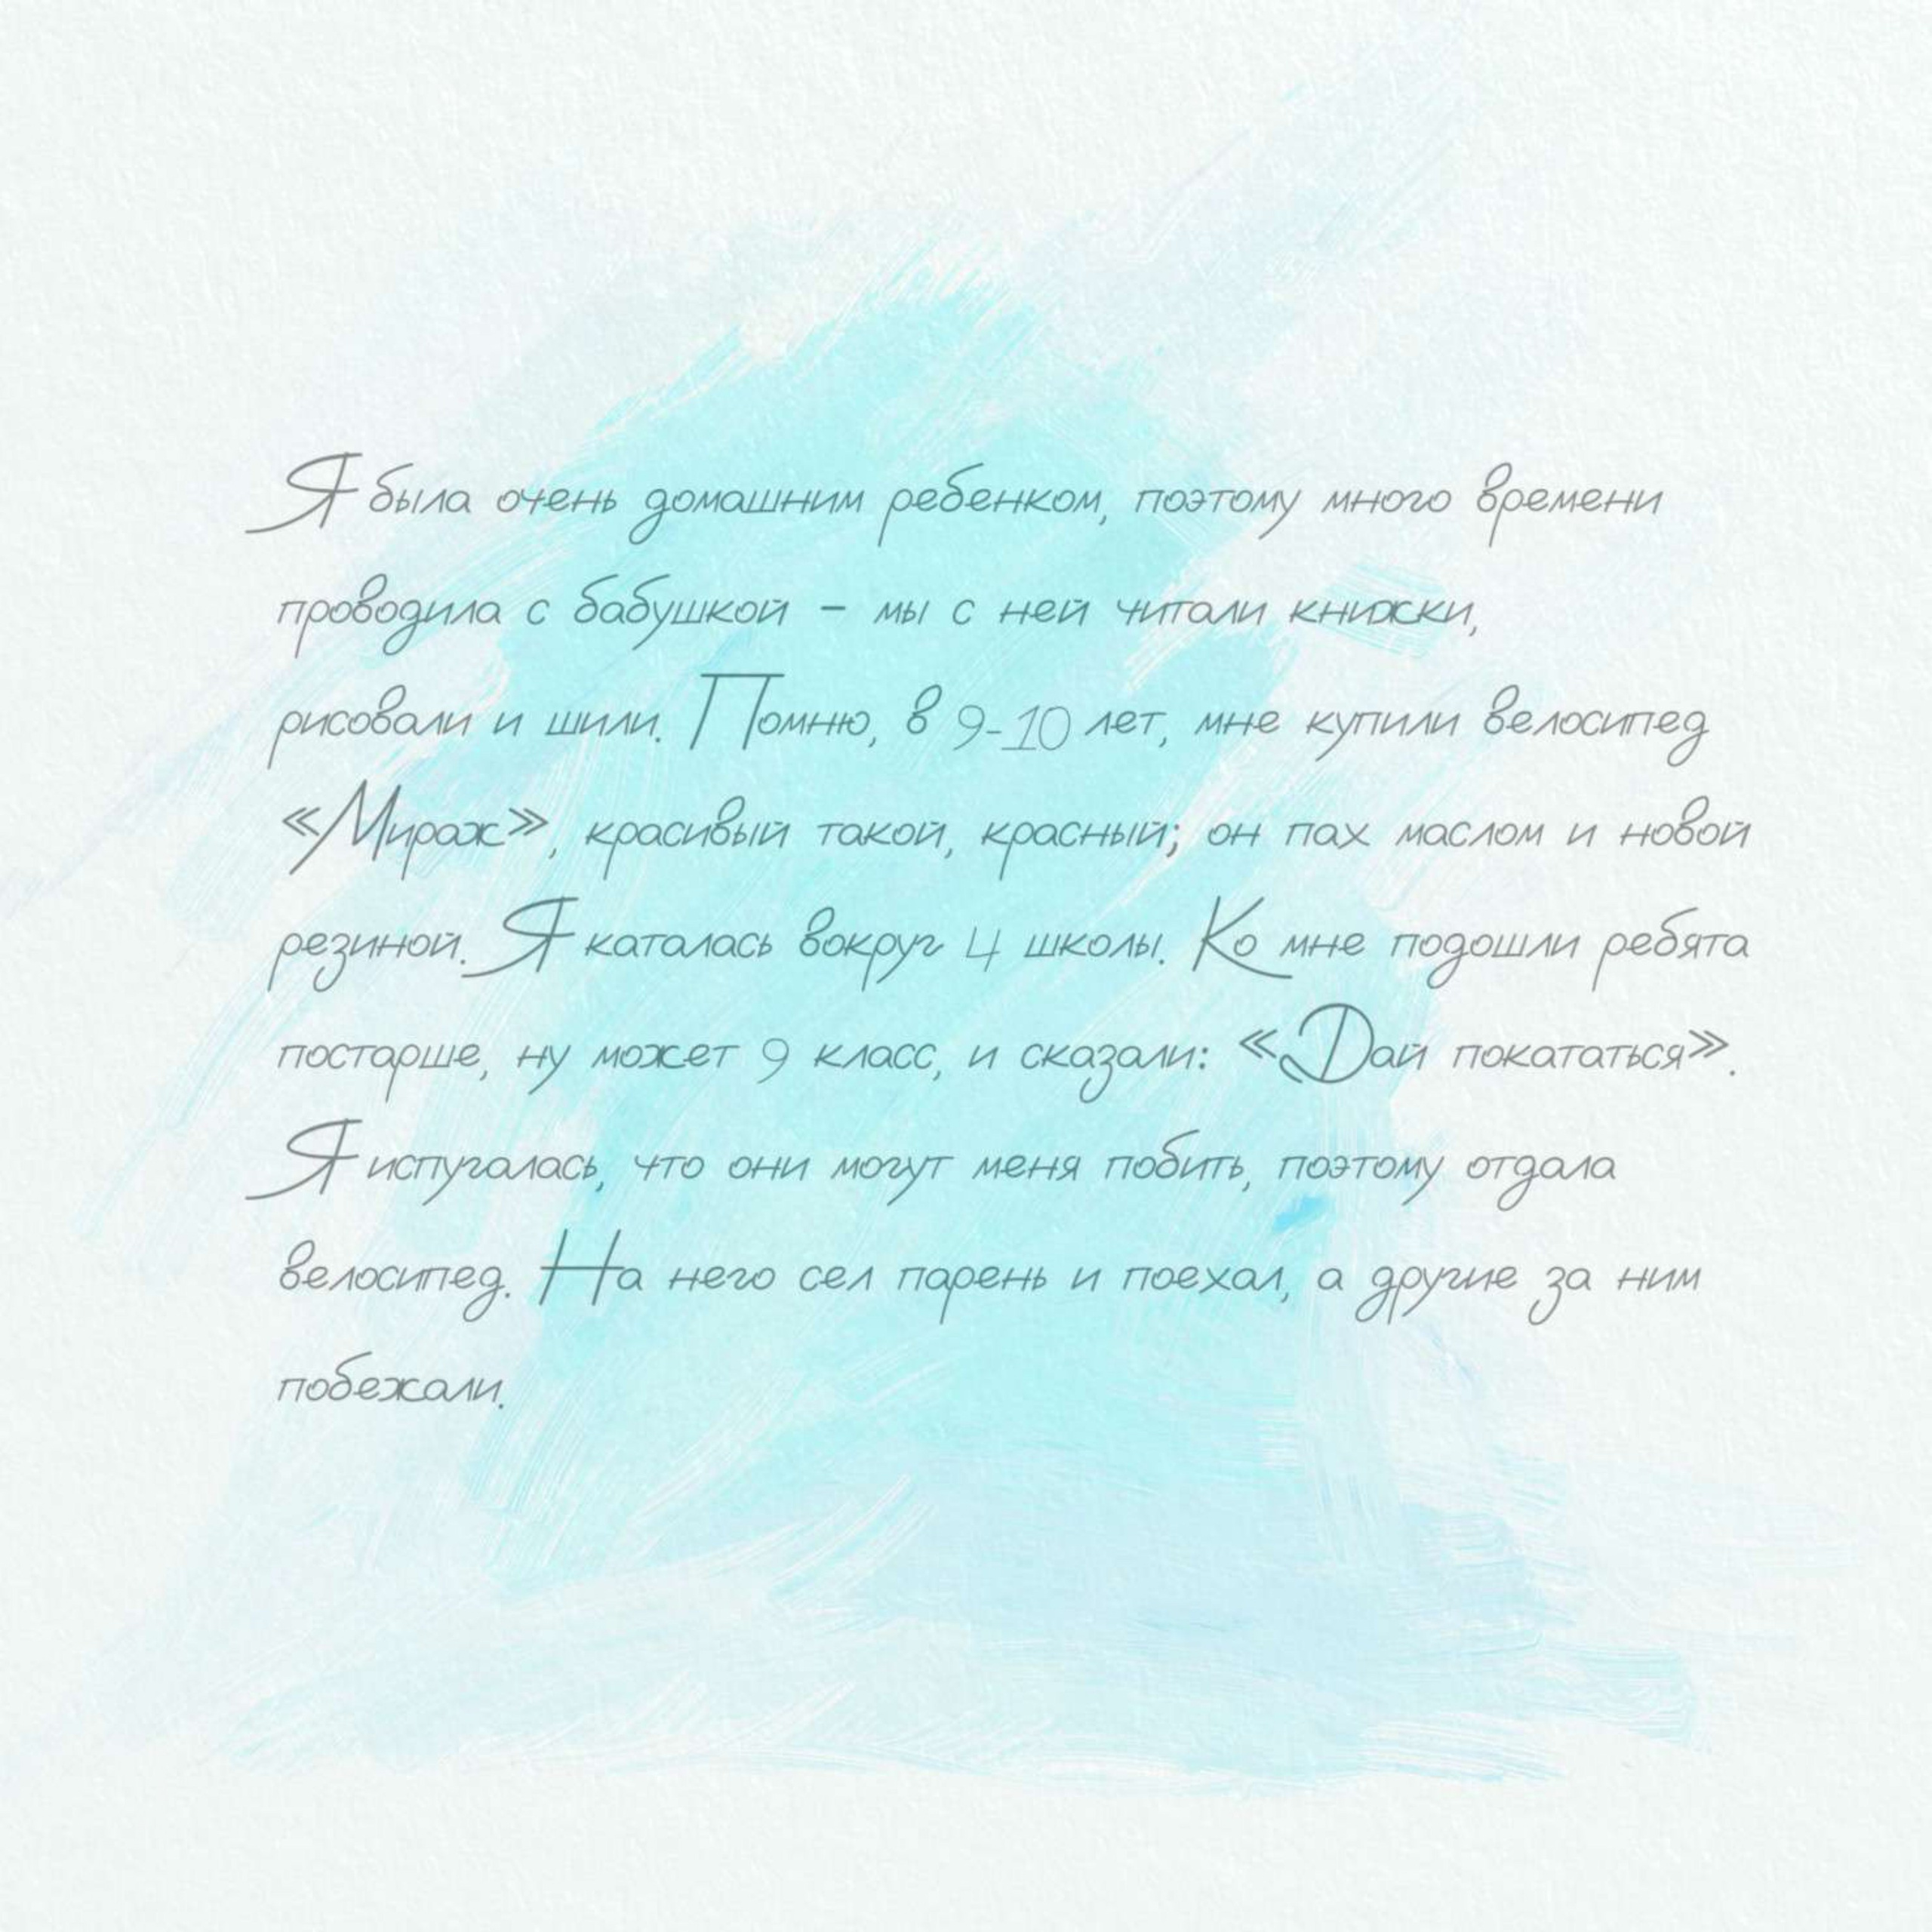 Я была очень домашним ребенком, поэтому много времени
проводила с бабушкой – мы с ней читали книжки,
рисовали и шили. Помню, в 9-10 лет, мне купили велосипед
«Мираж», красивый такой, красный; он пах маслом и новой
резиной. Я каталась вокруг 4 школы. Ко мне подошли ребята
постарше, ну может 9 класс, и сказали: «Дай покататься».
Я испугалась, что они могут меня побить, поэтому отдала
велосипед. На него сел парень и поехал, а другие за ним
побежали.